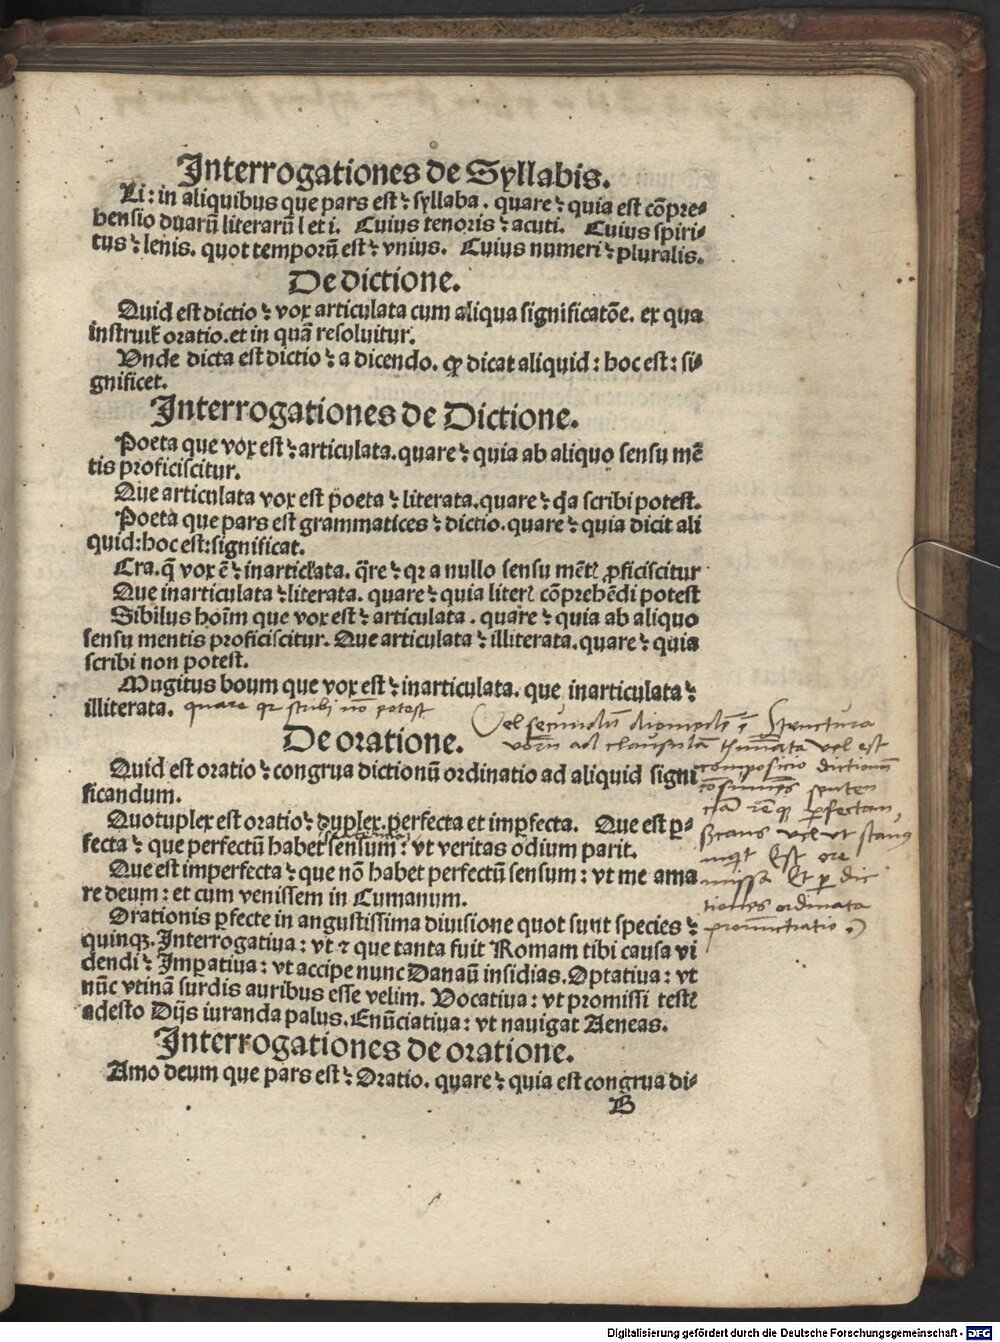 Interrogationes de Syllabis.
Li: in aliquibus que pars est? syllaba. quare? quia est cõpre-
hensio duarũ literarũ l et i. Cuius tenoris? acuti. Cuius spiri-
tus? lenis. quot temporũ est? vnius. Cuius numeri? pluralis.
De dictione.
Quid est dictio? vox articulata cum aliqua significatõe. ex qua
instruit̃ oratio. et in quã resoluitur.
Vnde dicta est dictio? a dicendo. ꝙ dicat aliquid: hoc est: si-
gnificet.
Interrogationes de Dictione.
Poeta que vox est? articulata. quare? quia ab aliquo sensu mẽ
tis proficiscitur.
Que articulata vox est poeta? literata. quare? q̃a scribi potest.
Poeta que pars est grammatices? dictio. quare? quia dicit ali
quid: hoc est: significat.
Cra. q̃ vox ẽ? inarticłata. q̃re? qꝛ a nullo sensu mẽtꝭ ꝓficiscitur
Que inarticulata? literata. quare? quia literꝭ cõprehẽdi potest
Sibilus hoĩm que vox est? articulata. quare? quia ab aliquo
sensu mentis proficiscitur. Que articulata? illiterata. quare? quia
scribi non potest.
Mugitus boum que vox est? inarticulata. que inarticulata?
illiterata. quare qꝛ scribi nõ potest
Vel secundũ diomedẽ ẽ structura
De oratione.
verborũ ad clausulã terminata vel est
Quid est oratio? congrua dictionũ ordinatio ad aliquid signi
composicio dictionũ
ficandum.
Quotuplex est oratio? duplex. perfecta et imꝑfecta. Que est ꝑ-
fecta? que perfectũ habet sensum: vt veritas odium parit.
Que est imperfecta? que nõ habet perfectũ sensum: vt me ama
re deum: et cum venissem in Cumanum.
tiones ordinata
pronunctiatio
Orationis ꝑfecte in angustissima diuisione quot sunt species?
quinqꝫ. Interrogatiua: vt ⁊ que tanta fuit Romam tibi causa vi
dendi? Imꝑatiua: vt accipe nunc Danaũ insidias. Optatiua: vt
nũc vtinã surdis auribus esse velim. Vocatiua: vt promissi testẽ
adesto Dijs iuranda palus. Enũciatiua: vt nauigat Aeneas.
Interrogationes de oratione.
Amo deum que pars est? Oratio. quare? quia est congrua di-
B
Digitalisierung gefördert durch die Deutsche Forschungsgemeinschaft - DFG